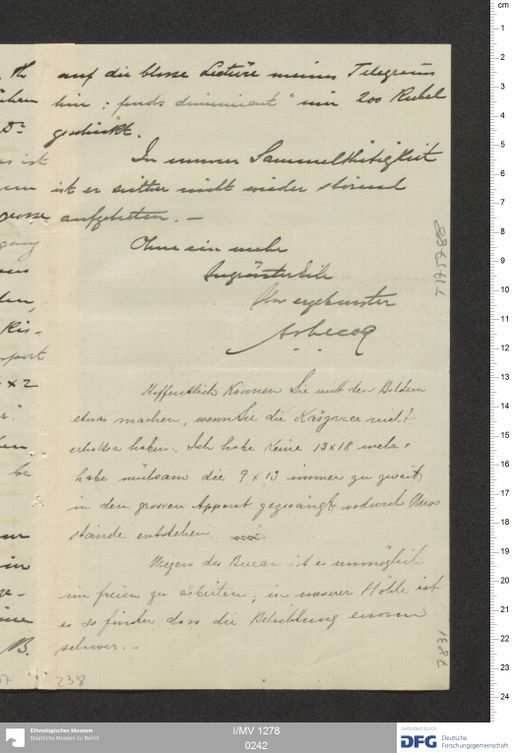 auf die blosse Lectüre meines Telegrams
hin: „fonds diminuent“ mir 200 Rubel
geschickt.
In unserer Sammelthätigkeit
ist er seither nicht wieder störend
aufgetreten. –
Ohne ein mehr
In grösster Eile
Ihr ergebenster
Hoffentlich können Sie mit den Bildern
etwas machen, wenn Sie die nicht
erhalten haben. Ich habe keine 13x18 mehr.
habe mühsam die 9x13 immer zu zweit
in den grossen Apparat gezwängt wodurch Miss
stände entstehen.
Wegen des Buran ist es unmöglich
im freien zu arbeiten, in unserer Höhle ist
es so finster dass die Belichtung enorm
schwer. –
238
Ethnologisches Museum
Staatliche Museen zu Berlin
I/MV 1278
0242
Gefördert durch
DFG Deutsche
Forschungsgemeinschaft
cm
1
2
3
4
5
6
7
8
9
10
11
12
13
14
15
16
17
18
19
20
21
22
23
24